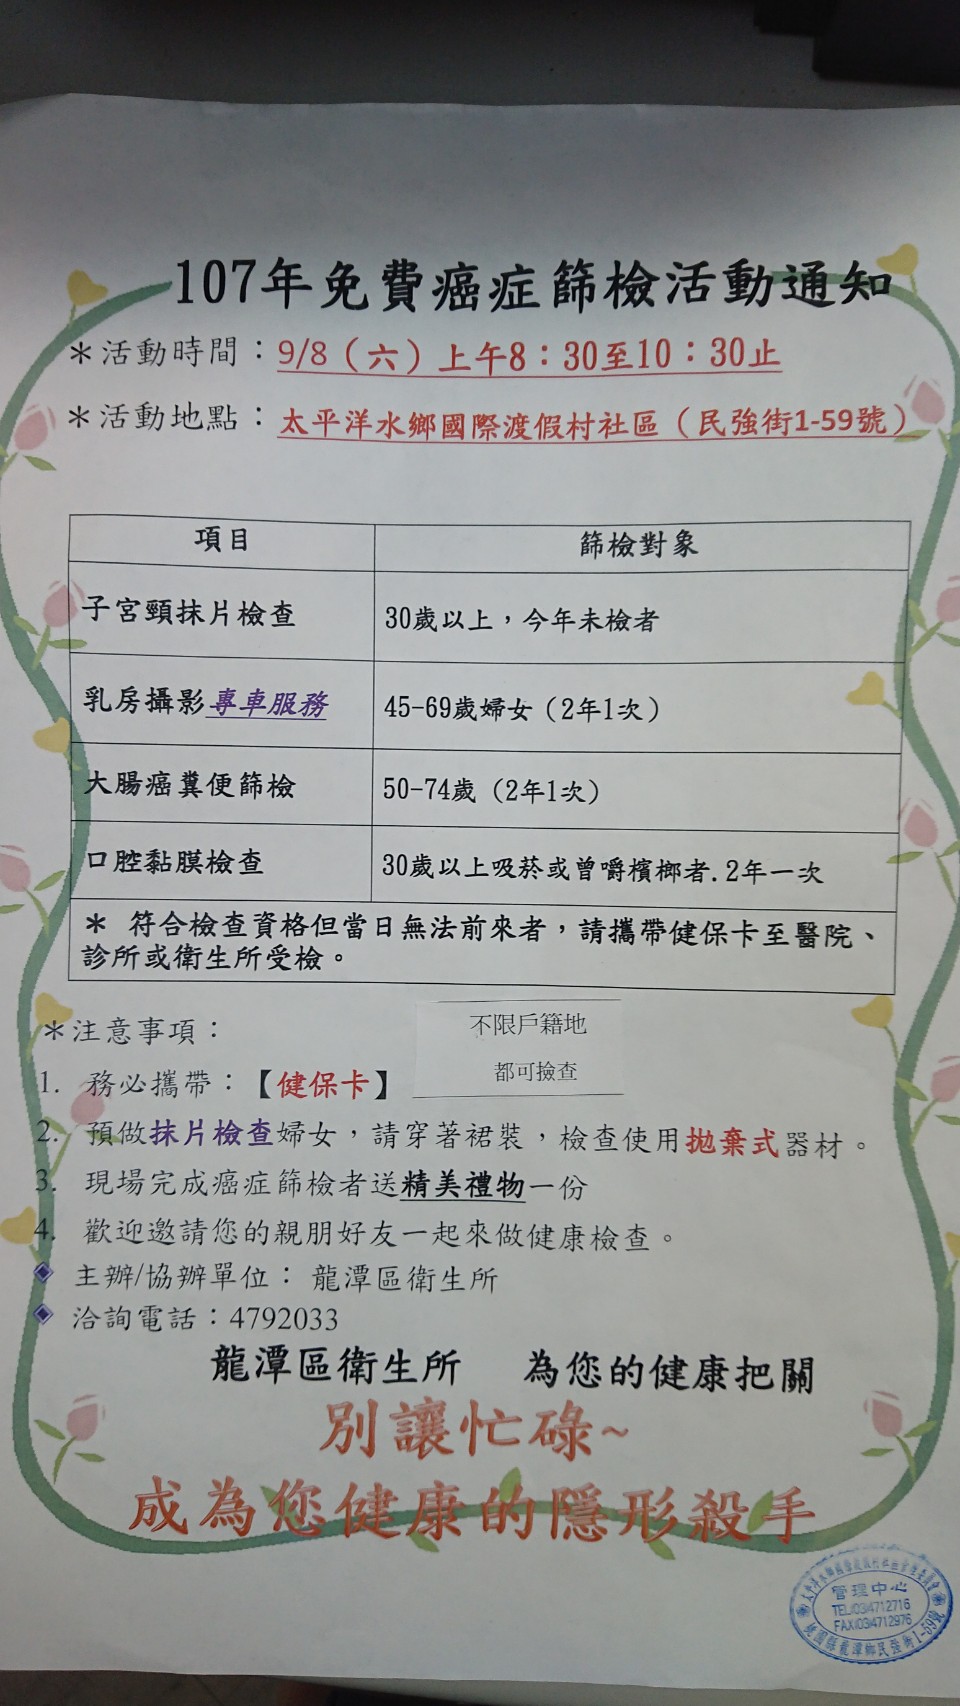 107年免費癌症篩檢活動通知
＊活動時間：9/8（六）上午8：30至10：30止
＊活動地點：太平洋水鄉國際渡假村社區（民強街1-59號）
項目 篩檢對象
子宮頸抹片檢查 30歲以上，今年未檢者
乳房攝影專車服務 45-69歲婦女（2年1次）
大腸癌糞便篩檢 50-74歲（2年1次）
口腔黏膜檢查 30歲以上吸菸或曾嚼檳榔者.2年一次
＊ 符合檢查資格但當日無法前來者，請攜帶健保卡至醫院、
診所或衛生所受檢。
＊注意事項：
不限戶籍地
都可撿查
1. 務必攜帶：【健保卡】
2. 預做抹片檢查婦女，請穿著裙裝，檢查使用拋棄式器材。
3. 現場完成癌症篩檢者送精美禮物一份
4. 歡迎邀請您的親朋好友一起來做健康檢查。
◈ 主辦/協辦單位： 龍潭區衛生所
◈ 洽詢電話：4792033
龍潭區衛生所 為您的健康把關
別讓忙碌~
成為您健康的隱形殺手
管理中心
TEL:(03)4712716
FAX:(03)4712976
桃園縣龍潭鄉民強街1-59號